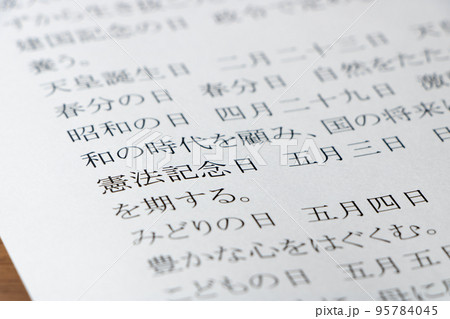 ずから生き抜
建国記念の日 政令で定
養う。
天皇誕生日 二月二十三日 天
春分の日 春分日 自然をたた
昭和の日 四月二十九日 激
和の時代を顧み、国の将来に
憲法記念日 五月三日 日
を期する。
みどりの日 五月四日
豊かな心をはぐくむ。
こどもの日 五月五
母に
pixta.jp - 95784045